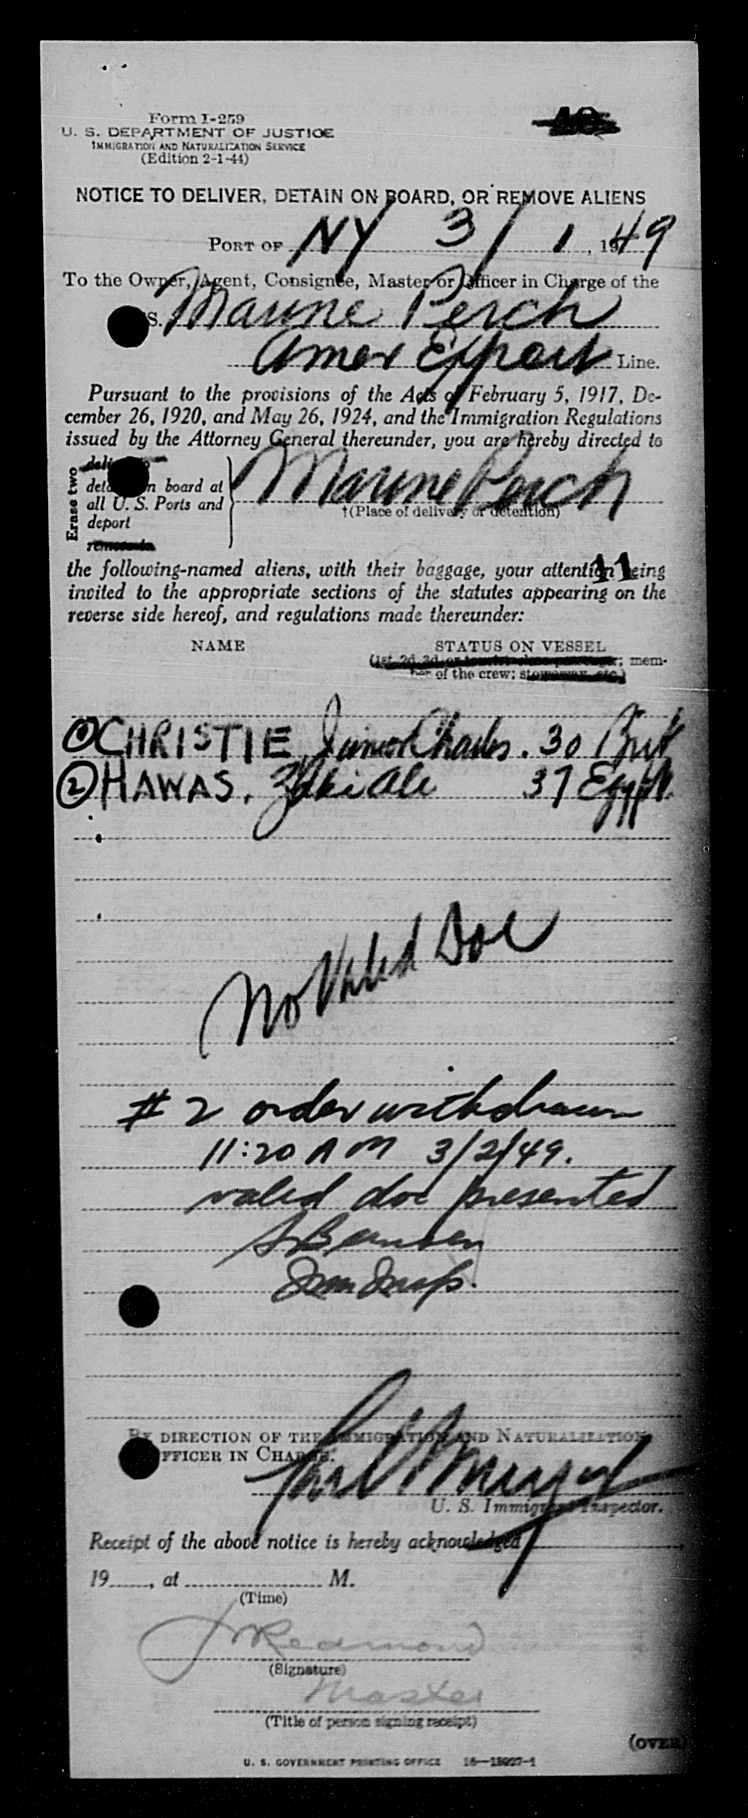 Form I-259
U. S. DEPARTMENT OF JUSTICE
IMMIGRATION AND NATURALIZATION SERVICE
(Edition 2-1-44)
NOTICE TO DELIVER, DETAIN ON BOARD, OR REMOVE ALIENS
PORT OF NY 3/1, 1949
To the Owner, Agent, Consignee, Master or Officer in Charge of the
S. Marine Perch
Amer Export Line.
Pursuant to the provisions of the Acts of February 5, 1917, De-
cember 26, 1920, and May 26, 1924, and the Immigration Regulations
issued by the Attorney General thereunder, you are hereby directed to
Erase two
detain on board at
all U. S. Ports and
deport
remove to
Marine Perch
†(Place of delivery or detention)
41
the following-named aliens, with their baggage, your attention being
invited to the appropriate sections of the statutes appearing on the
reverse side hereof, and regulations made thereunder:
NAME STATUS ON VESSEL
(1st, 2d, 3d, or tourist class passenger; mem-
ber of the crew; stowaway, etc.)
① CHRISTIE, Junior Charles. 30 Brit
② HAWAS, Zaki Ale 37 Egypt.
No Valid Doc
# 2 order withdrawn
11:20 AM 3/2/49.
valid doc presented
Imm Insp.
BY DIRECTION OF THE IMMIGRATION AND NATURALIZATION
OFFICER IN CHARGE.
U. S. Immigrant Inspector.
Receipt of the above notice is hereby acknowledged
19____, at ____ M.
(Time)
J Redmond
(Signature)
Master
(Title of person signing receipt)
(OVER)
U. S. GOVERNMENT PRINTING OFFICE 16—18927-1